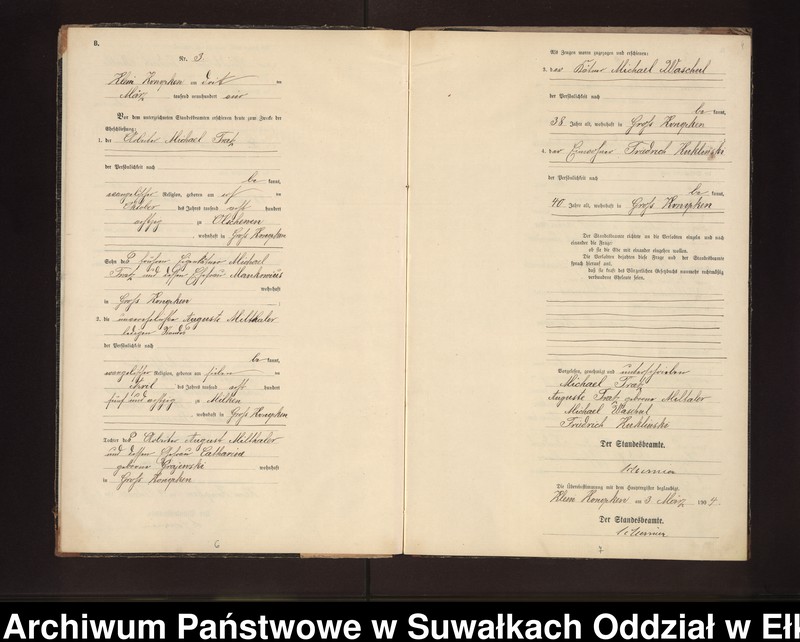 8.
Nr. 3
Klein Konopken am drit ten
März tausend neunhundert
Vor dem unterzeichneten Standesbeamten erschienen heute zum Zwecke der
Eheschließung:
1. der Arbeiter Michael Fratz
der Persönlichkeit nach
be kannt,
evangelischer Religion, geboren am ten
Oktober des Jahres tausend acht hundert
achtzig zu Olschewen
, wohnhaft in Groß Konopken
Sohn des Michael
Fratz und dessen Ehefrau
wohnhaft
in Groß Konopken
2. die unverehelichte Auguste Milthaler
ledigen Standes
der Persönlichkeit nach
be kannt,
evangelischer Religion, geboren am ten
April des Jahres tausend acht hundert
fünf und achtzig zu Milken
, wohnhaft in Groß Konopken
Tochter des Arbeiter August Milthaler
und dessen Ehefrau Catharina
geborene Grajewski wohnhaft
in Groß Konopken
6
Als Zeugen waren zugezogen und erschienen:
3. der Kätner Michael Waschul
der Persönlichkeit nach
be kannt,
38 Jahre alt, wohnhaft in Groß Konopken
4. der Einwohner Friedrich Kuklinski
der Persönlichkeit nach
be kannt,
40 Jahre alt, wohnhaft in Groß Konopken
Der Standesbeamte richtete an die Verlobten einzeln und nach
einander die Frage:
ob sie die Ehe mit einander eingehen wollen.
Die Verlobten bejahten diese Frage und der Standesbeamte
sprach hierauf aus,
daß sie kraft des Bürgerlichen Gesetzbuchs nunmehr rechtmäßig
verbundene Eheleute seien.
Vorgelesen, genehmigt und unterschrieben
Michael Fratz
Auguste Fratz geborene Miltaler
Michael Waschul
Friedrich Kuklinski
Der Standesbeamte.
Die Übereinstimmung mit dem Hauptregister beglaubigt.
Klein Konopken am 3 März 190
Der Standesbeamte.
7
Archiwum Państwowe w Suwałkach Oddział w Eł